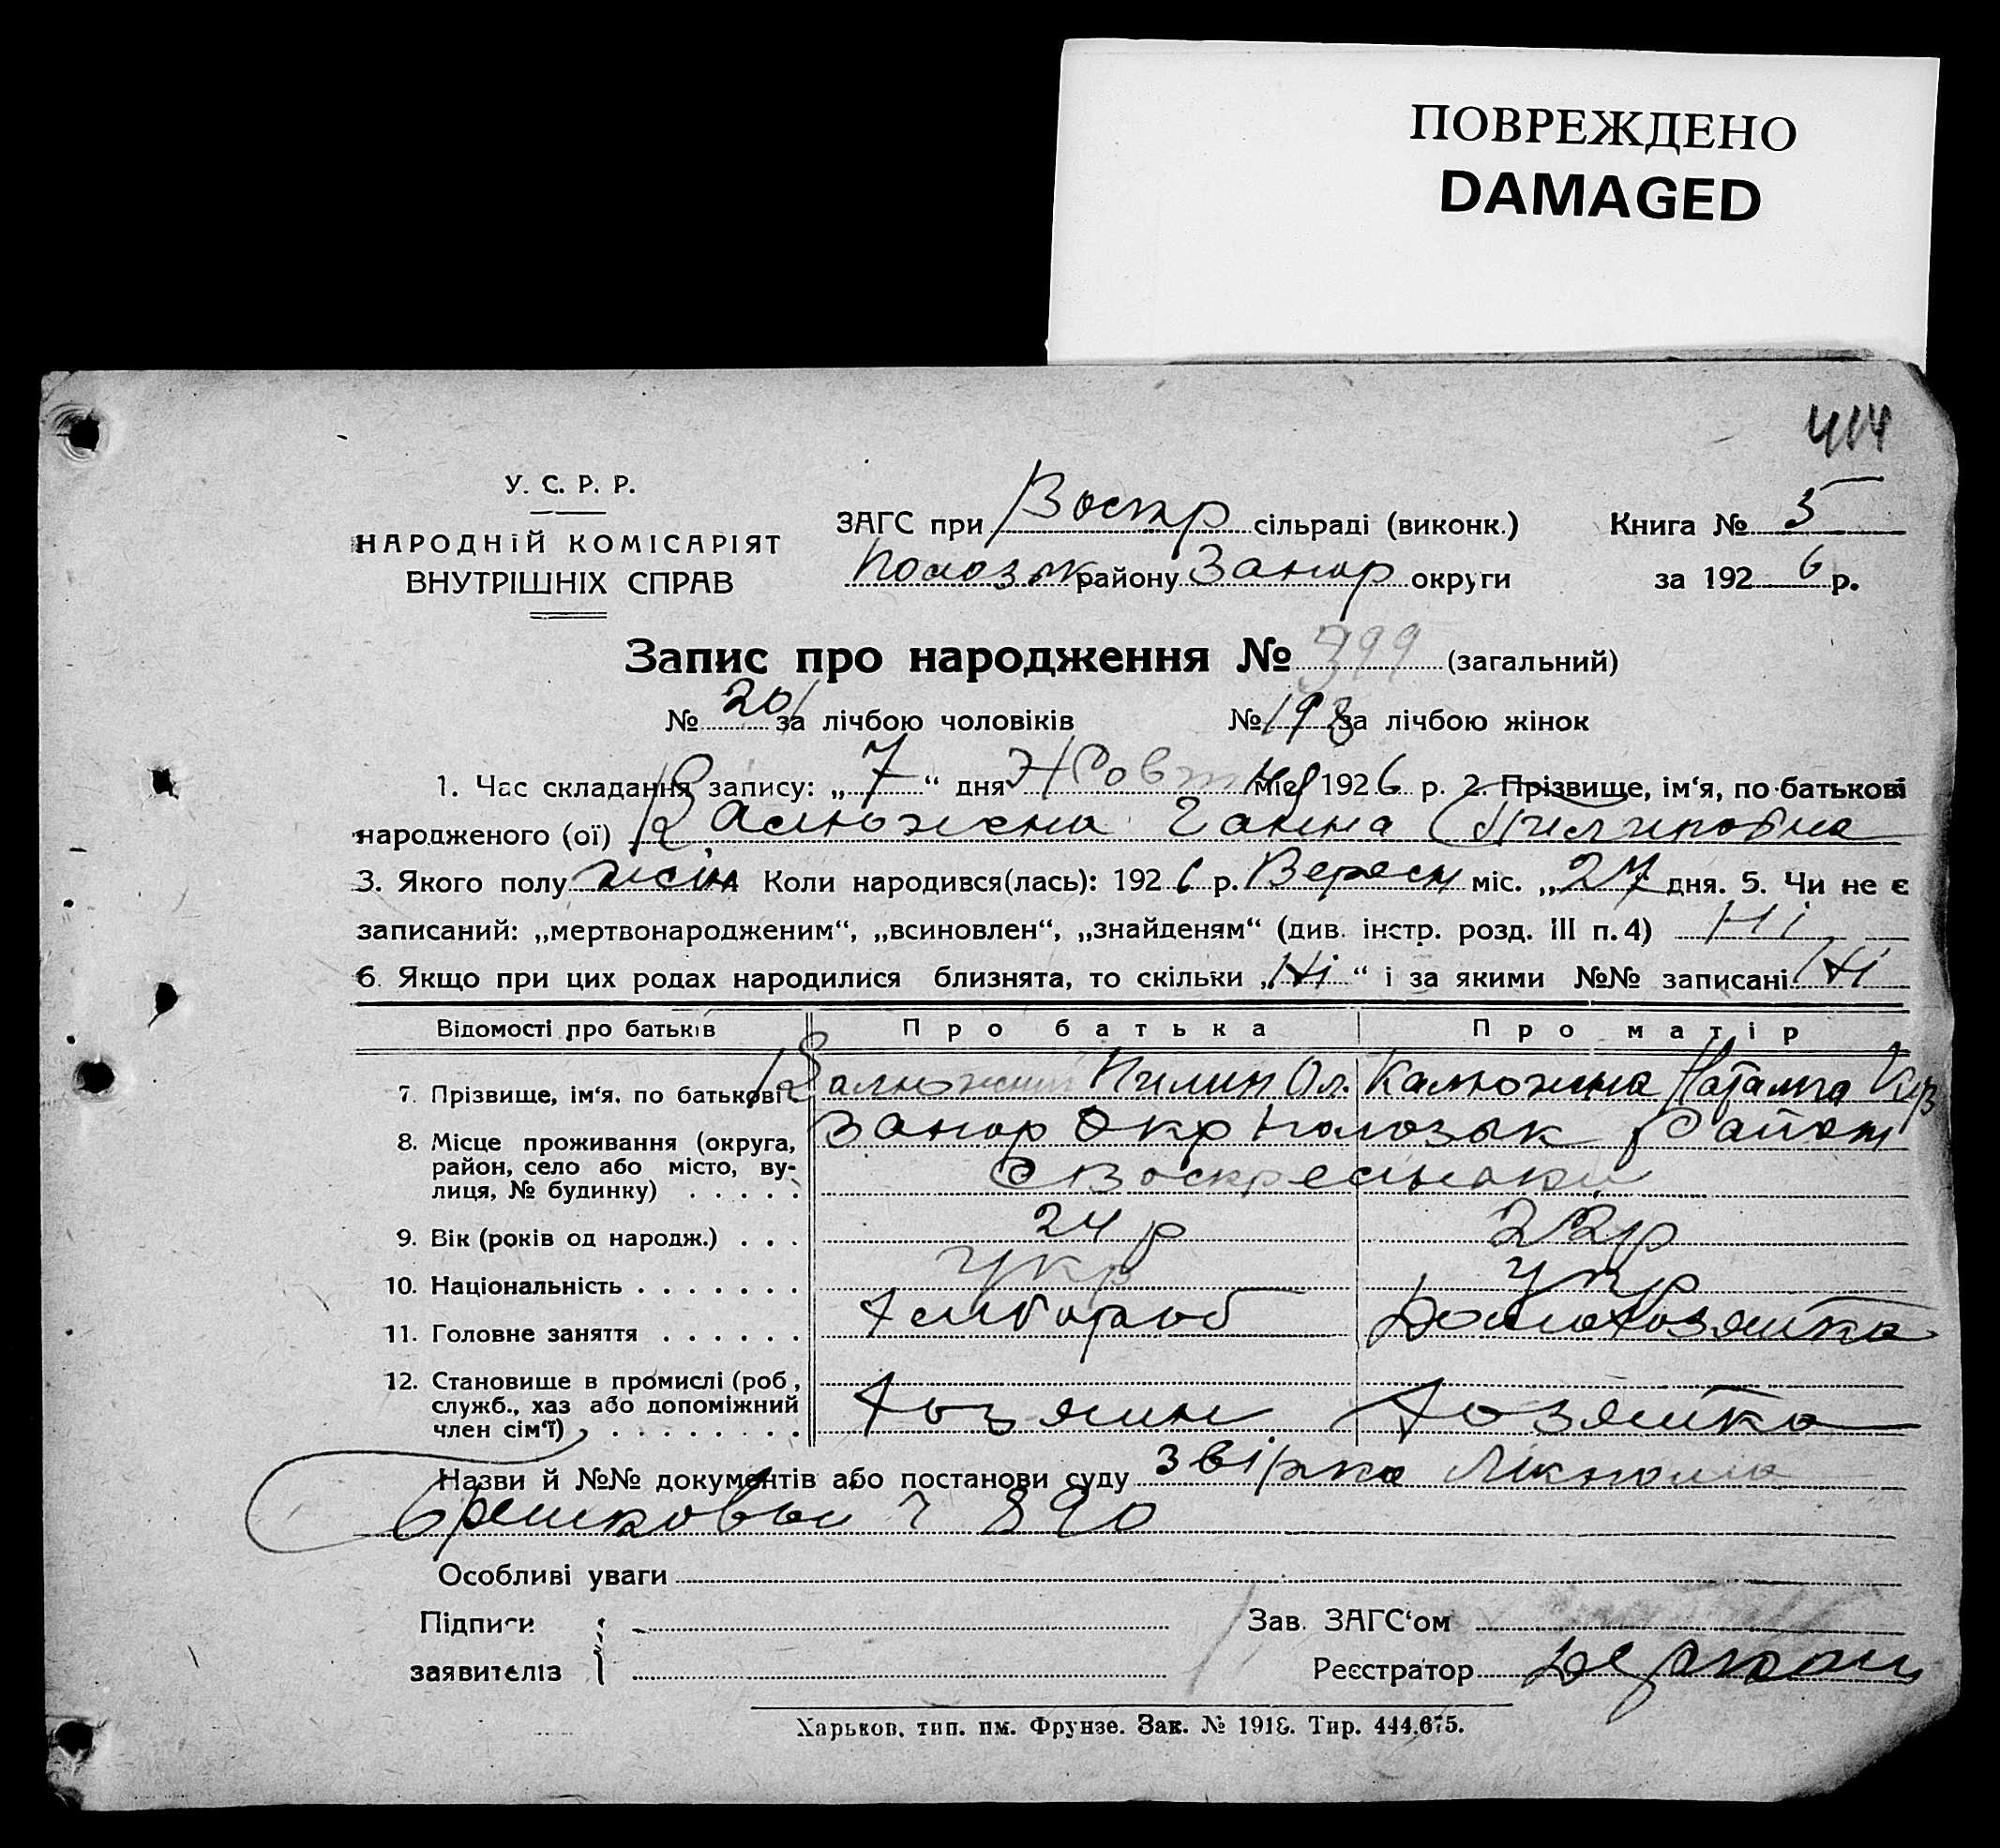 ПОВРЕЖДЕНО
DAMAGED
414
У. С. Р. Р.
НАРОДНІЙ КОМІСАРІЯТ
ВНУТРІШНІХ СПРАВ
ЗАГС при Воскр сільраді (виконк.)
района Запор округи
Книга № 5
за 1926 р.
Запис про народження № 399 (загальний)
№ 201 за лічбою чоловіків № 198 за лічбою жінок
1. Час складання запису: „7“ дня Жовтня міс 1926 р. 2. Прізвище, ім‘я, по батькові
народженого (ої) Калюжна Ганна Пилиповна
3. Якого полу жін Коли народився(лась): 1926 р. Вересн міс. „27 дня. 5. Чи не є
записаний: „мертвонародженим“, „всиновлен“, „знайденям“ (див. інстр. розд. III п. 4) Ні
6. Якщо при цих родах народилися близнята, то скільки „Ні“ і за якими №№ записані Ні
Відомості про батьків Про батька Про матір
7. Прізвище, ім‘я, по батькові. Калюжний Пилип Ол. Калюжна Наталья
8. Місце проживання (округа, Запор Окр Район
район, село або місто, ву-
лиця, № будинку) . . . . . с Воскресенка
9. Вік (років од народж.) . . . 24 р 22 р
10. Національність . . . . . . . Укр Укр
11. Головне заняття . . . . . . Хлібороб Домохозяйка
12. Становище в промислі (роб,
служб., хаз або допоміжний
член сім‘ї) . . . . . . . . Хозяин Хозяйка
Назви й №№ документів або постанови суду
890
Особливі уваги
Підписи
заявителів
Зав. ЗАГС‘ом
Реєстратор
Харьков, тип. им. Фрунзе. Зак. № 1918. Тир. 444.675.